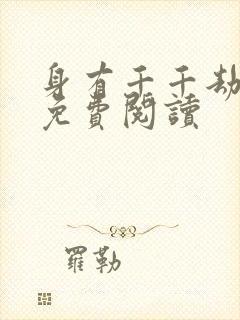 身有千千劫
免費閱讀
羅勒